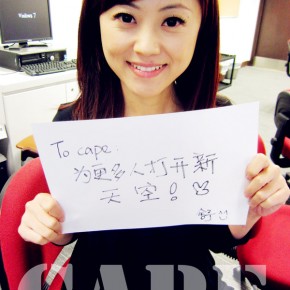 Windows 7
To cape:
为更多人打开新
天空!
CAPE